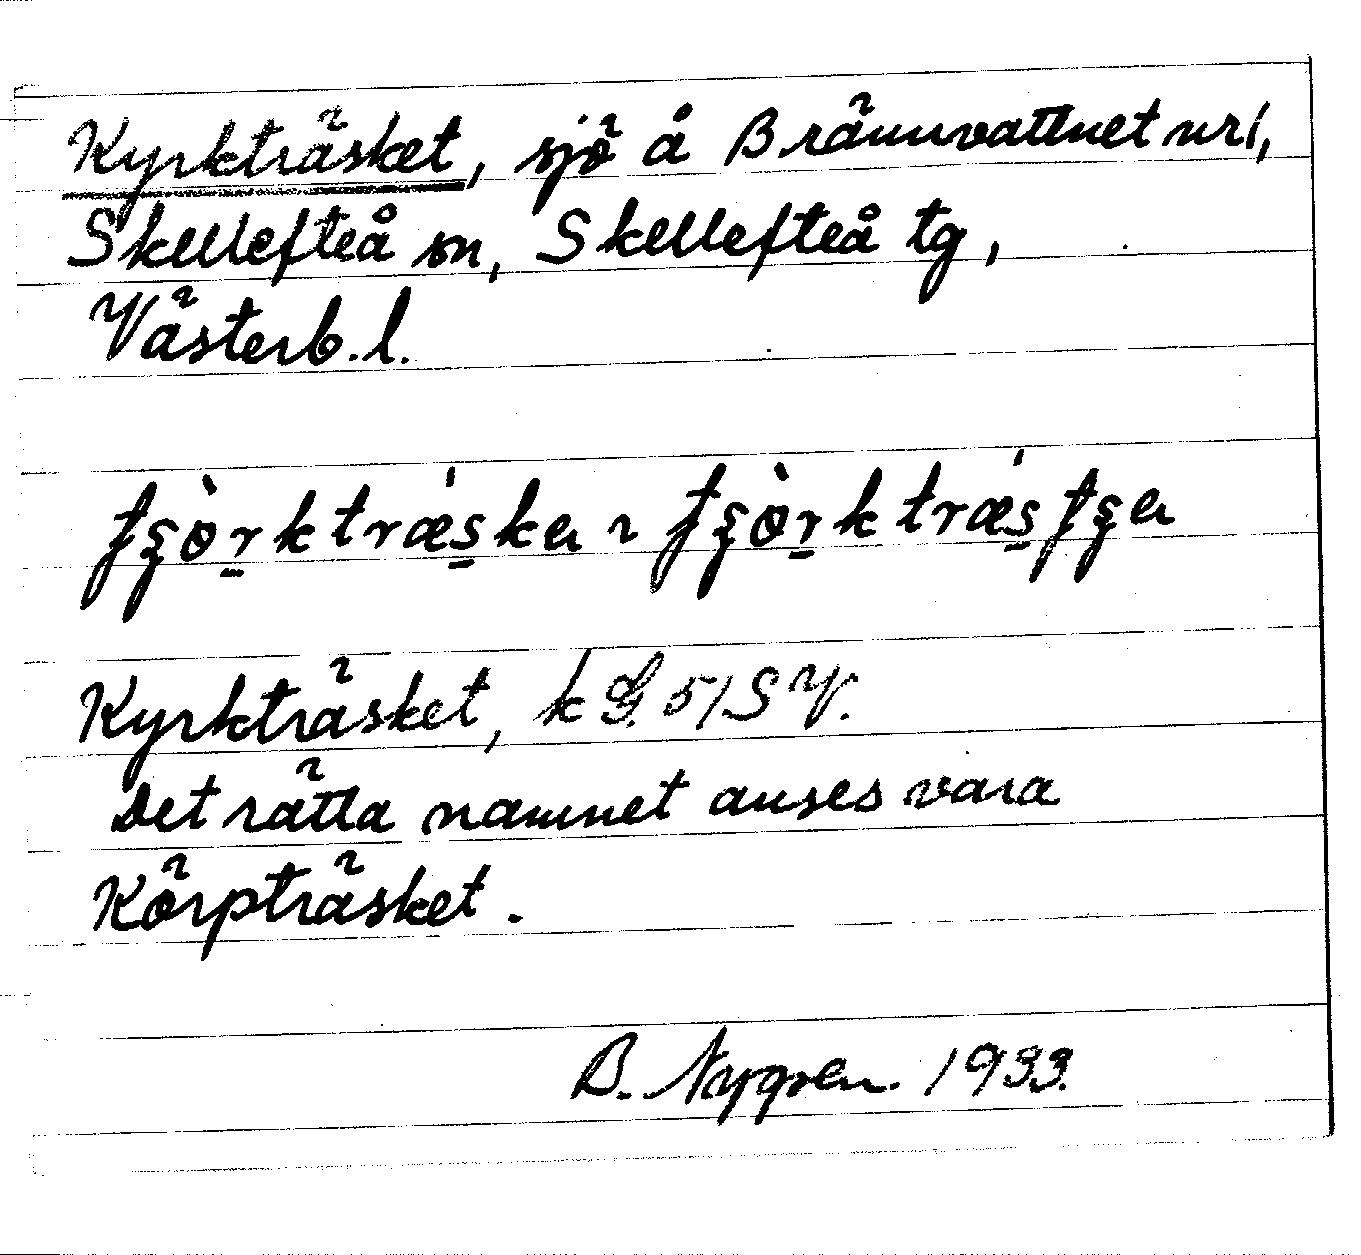 Kyrkträsket, sjö å Brännvattnet nr 1,
Skellefteå sn, Skellefteå tg,
Västerb. l.
Kyrkträsket, k G. 51 S V.
Det rätta namnet anses vara
Körpträsket.
B. Nygren. 1933.